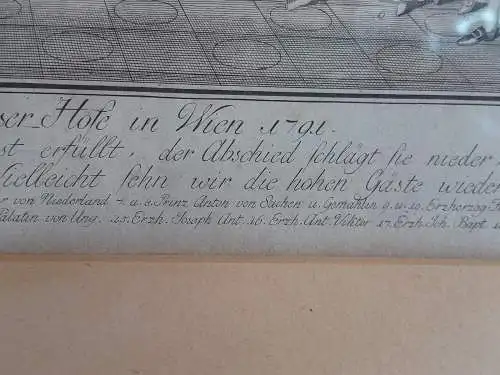 ser-Hofe in Wien 1791.
st erfüllt, der Abschied schlägt sie nieder
Vielleicht sehn wir die hohen Gäste wieder
r von Niederland 7. u. 8. Prinz Anton von Sachen u. Gemahlin 9. u. 10. Erzherzog F
Palatin von Ung. 15. Erzh. Joseph Ant. 16. Erzh. Ant. Viktor 17. Erzh. Joh. Bapt. 1